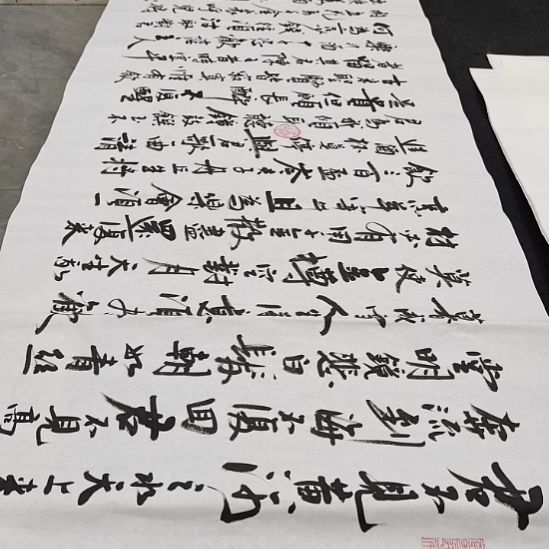 君不見黄河之水天上来
奔流到海不復回君不見高
堂明鏡悲白髮朝如青絲
暮成雪人生得意須盡歡
莫使金樽空對月天生我
材必有用千金散盡還復来
烹羊宰牛且為樂會須一
飲三百杯岑夫子丹丘生將
進酒杯莫停與君歌一曲請
君為我傾耳聽鐘鼓饌玉不
足貴但願長醉不復醒
古来聖賢皆寂寞惟有飲
者留其名陳王昔時宴平
樂斗酒十千恣歡謔主人
何為言少錢徑須沽取對君